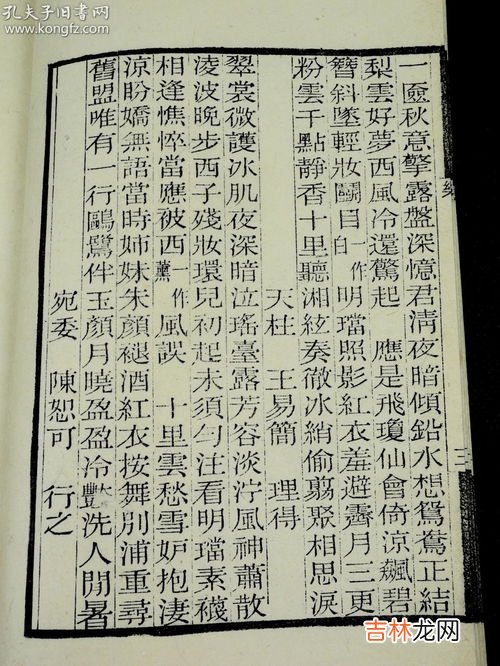 孔夫子旧书网
www.kongfz.com
三
一奩秋意擎露盤深憶君清夜暗傾鉛水想鴛鴦正結
梨雲好夢西風冷還驚起　應是飛瓊仙會倚涼飆碧
簪斜墜輕妝鬭目一作白明璫照影紅衣羞避霽月三更
粉雲千點靜香十里聽湘絃奏徹冰綃偷翦聚相思淚
天柱　王易簡　理得
翠裳微護冰肌夜深暗泣瑤臺露芳容淡泞風神蕭散
淩波晚步西子殘妝環兒初起未須勻注看明璫素襪
相逢憔悴當應被西一作薰風誤　十里雲愁雪妒抱淒
涼盼嬌無語當時姊妹朱顏褪酒紅衣按舞別浦重尋
舊盟唯有一行鷗鷺伴玉顏月曉盈盈冷豔洗人閒暑
宛委　陳恕可　行之
吉林龙网